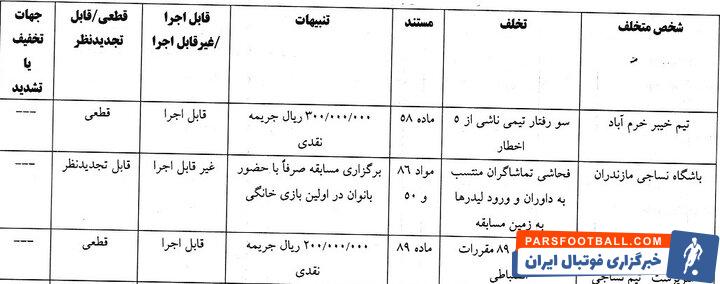 شخص متخلف
تخلف
مستند
تنبیهات
قابل اجرا
/غیرقابل اجرا
قطعی/قابل
تجدیدنظر
جهات
تخفیف
یا
تشدید
تیم خیبر خرم آباد
سو رفتار تیمی ناشی از ۵
اخطار
ماده ۵۸
۳۰۰/۰۰۰/۰۰۰ ریال جریمه
نقدی
قابل اجرا
قطعی
---
باشگاه نساجی مازندران
فحاشی تماشاگران منتسب
به داوران و ورود لیدرها
به زمین مسابقه
مواد ۸۶
و ۵۰
برگزاری مسابقه صرفاً با حضور
بانوان در اولین بازی خانگی
غیر قابل اجرا
قابل تجدیدنظر
---
سرپرست تیم نساجی
۸۹ مقررات
انضباطی
ماده ۸۹
۲۰۰/۰۰۰/۰۰۰ ریال جریمه
نقدی
قابل اجرا
قطعی
---
PARSFOOTBALL.COM
خبرگزاری فوتبال ایران